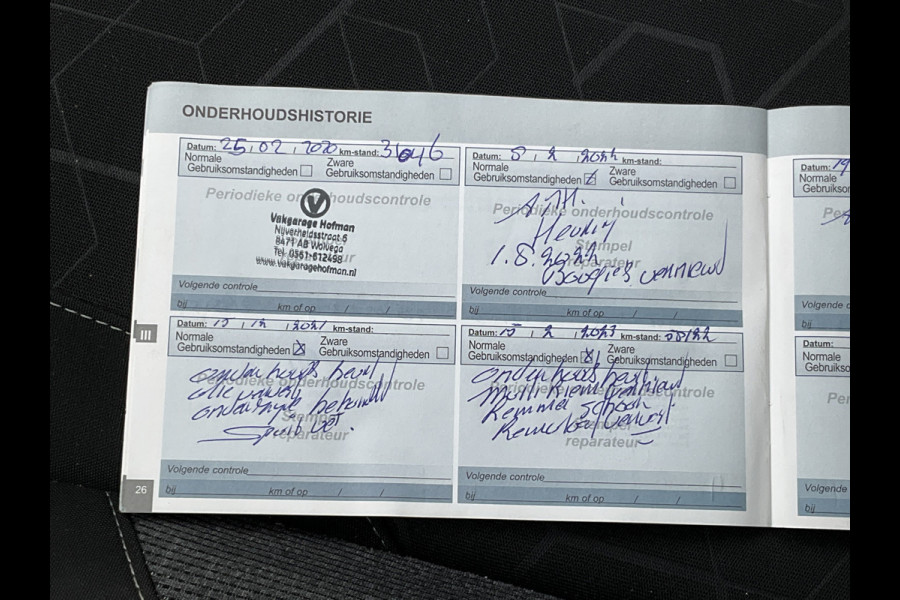 ONDERHOUDSHISTORIE
Datum: 25, 02, 2020 km-stand: 36046
Normale Gebruiksomstandigheden
Zware Gebruiksomstandigheden
Periodieke onderhoudscontrole
Vakgarage Hofman
Nijverheidsstraat 6
8471 AB Wolvega
Tel. 0561-612498
www.vakgaragehofman.nl
Volgende controle
bij km of op / /
Datum: 8, 2, 2022 km-stand:
Normale Gebruiksomstandigheden
Zware Gebruiksomstandigheden
Periodieke onderhoudscontrole
Stempel
reparateur
1.8.2022
Bougies vernieuwd
Volgende controle
bij km of op / /
III
Datum: 15, 12, 2021 km-stand:
Normale Gebruiksomstandigheden
Zware Gebruiksomstandigheden
Periodieke onderhoudscontrole
onderhouds beurt
Stempel
reparateur
Volgende controle
bij km of op / /
Datum: 15, 2, 2023 km-stand:
Normale Gebruiksomstandigheden
Zware Gebruiksomstandigheden
Periodieke onderhoudscontrole
onderhouds beurt
Remmen schoon
Stempel
Remvloeistof ververst
reparateur
Volgende controle
bij km of op / /
26
Datum: 19
Normale
Gebruikso
Pe
Volgende c
bij
Datum:
Normale
Gebruikso
Pe
Volgende
bij